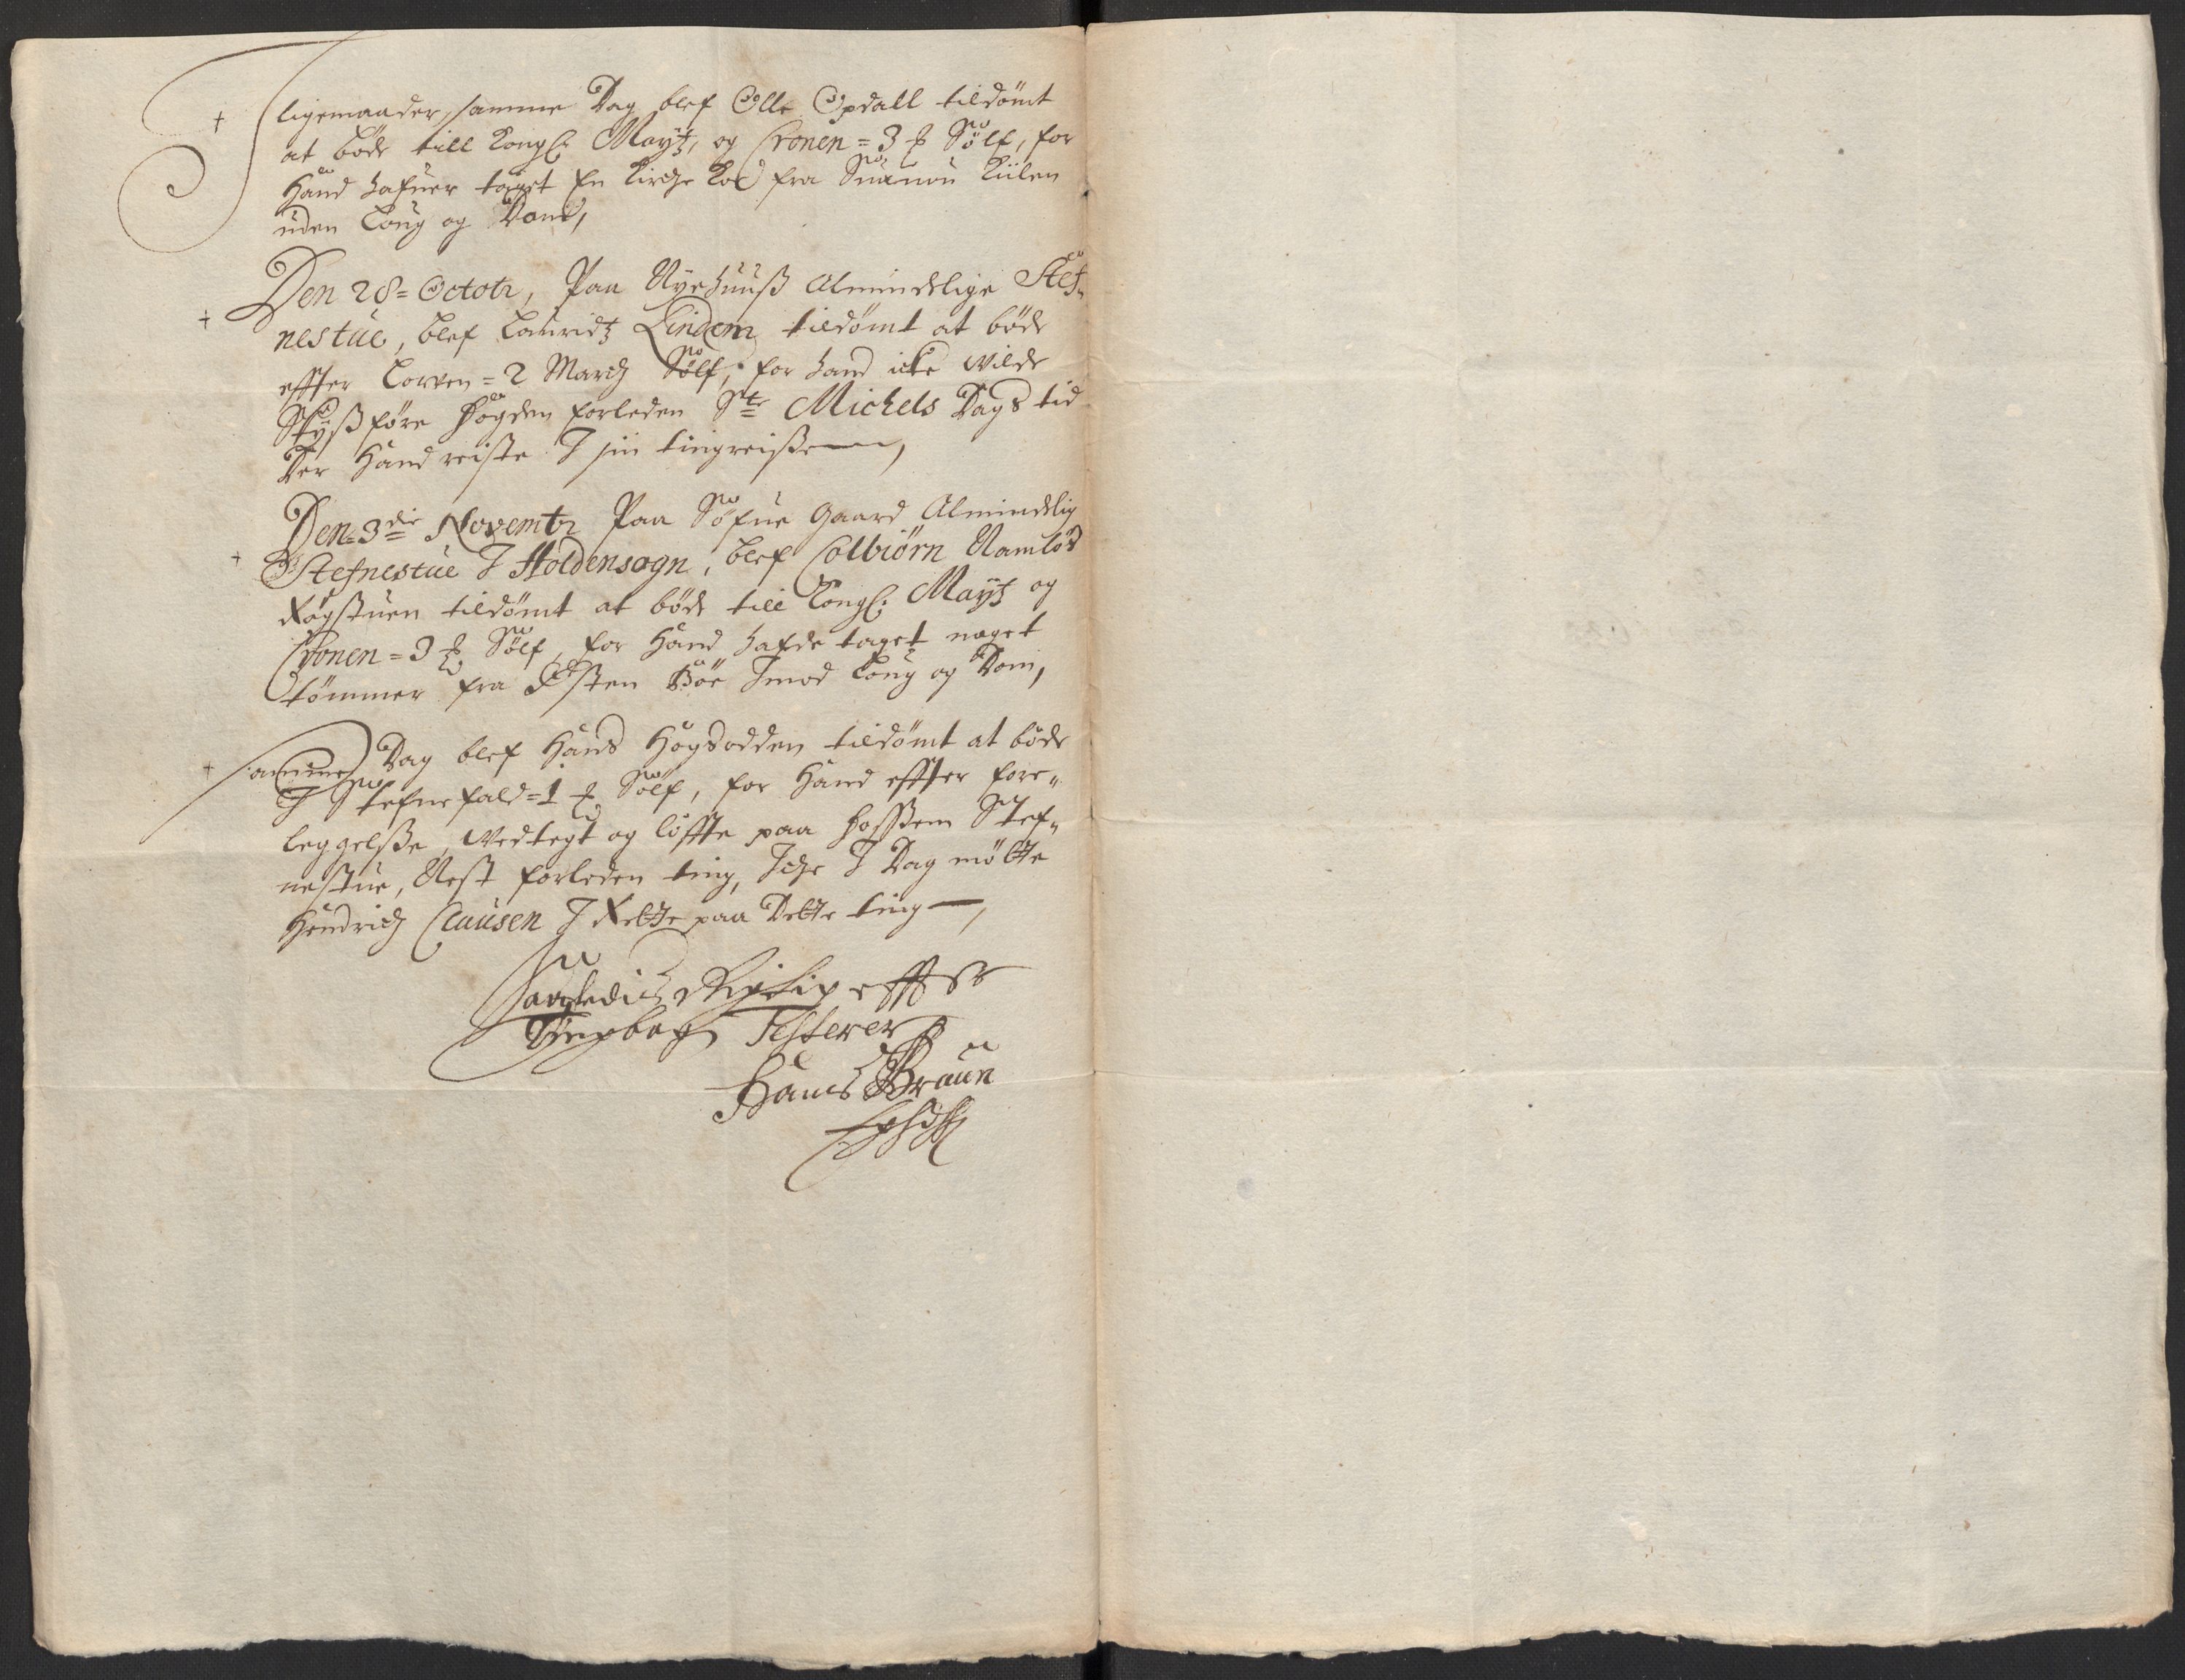 † I ligemaader, samme Dag blef Olle Opdall tildømt
at bøde till Kongl: Mayt, og Cronen = 3 ℔ Sølf, for
Hand hafuer taget En Kirche Koe fra Kiilen
uden Loug og Dom,
Den 28 = Octobr, Paa Nyehuuß Almindelige Stef„
† nestue, blef Lauridtz Lindem tildømt at bøde
effter Lowen = 2 March Sølf, for hand icke wilde
Skyßføre fogden forleden Ste Michels Dags tid
Der Hand reiste I sin tingreiße,
Den = 3die Novembr Paa Søfue Gaard Almindelig
† Stefnestue I Holdensogn, blef Colbiørn Namløs
Røgstuen tildømt at bøde till Kongl: Mayt og
Cronen = 3 ℔ Sølf, for Hand hafde taget noget
tømmer fra Østen Bøe Imod Loug og Dom,
† samme Dag blef Hans Høgsodden tildømt at bøde
I Stefnefald = 1 ℔ Sølf, for Hand effter fore„
leggelße, Wedtegt og løffte paa Stef„
nestue, Nest forleden ting, Iche I Dag mødte
Hendrich Clausen I Rette paa Dette ting,
Saaledis Rigtig effter
Tingbogen Testerer
Hans Braun